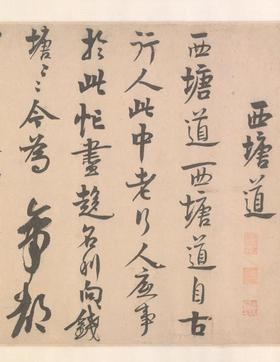 西塘道
西塘道西塘道自古
行人此中老行人底事
於此忙盡趍名利向錢
塘〻今為帝都